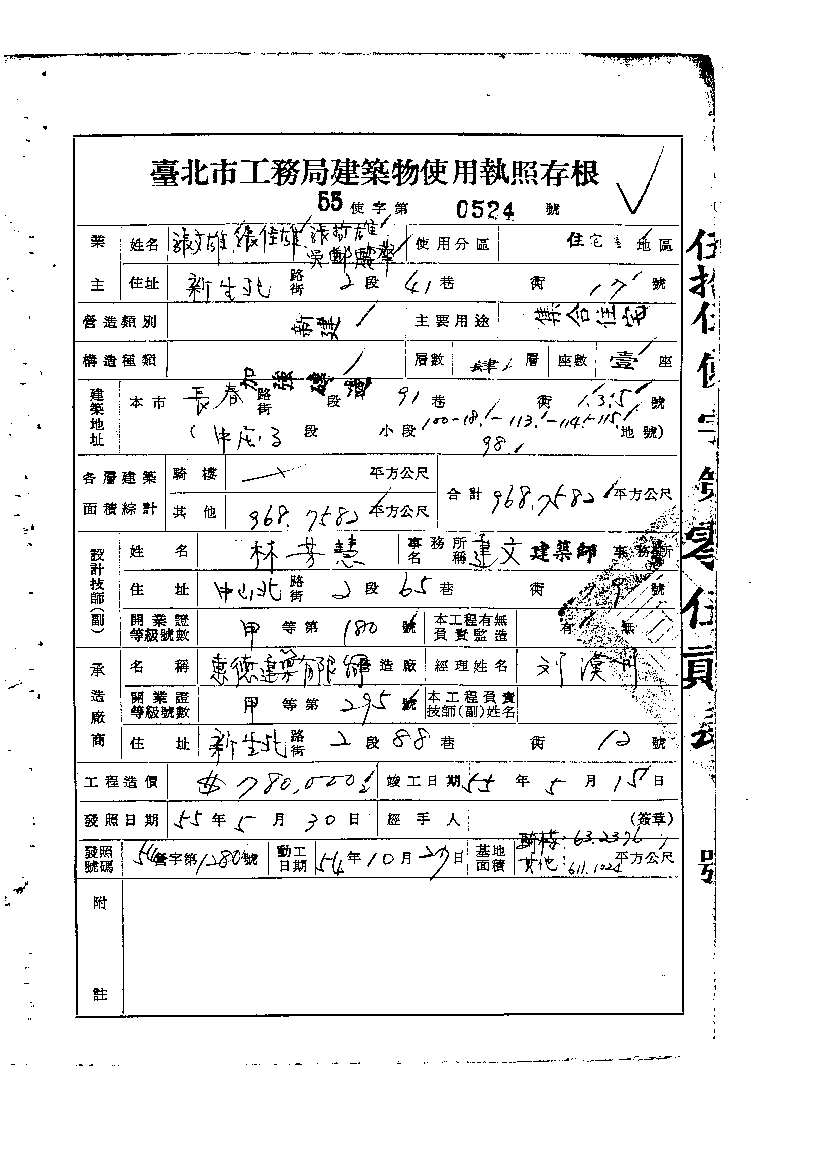 臺北市工務局建築物使用執照存根
55 使字第 0524 號
業主 姓名 張文雄 張佳雄 張哲雄 使用分區 住宅 地區
住址 新生北 路街 2 段 41 巷 街 17 號
營造類別 新建 主要用途 集合住宅
構造種類 加強磚造 層數 肆 層 座數 壹 座
建築地址 本市 長春 路街 段 91 巷 街 1.3.5 號
( 段 小段 100-18.-113.-114.-115. 地號)
98.
各層建築面積綜計 騎樓 平方公尺 合計 968.7582 平方公尺
其他 968.7582 平方公尺
設計技師(副) 姓名 林芳慧 事務所名稱 建文建築師事務所
住址 中山北 路街 2 段 65 巷 街 9 號
開業證等級號數 甲 等第 180 號 本工程有無負責監造 有 無
承造廠商 名稱 惠德建築 營造廠 經理姓名 刘漢
開業證等級號數 甲 等第 295 號 本工程負責技師(副)姓名
住址 新生北 路街 2 段 88 巷 街 12 號
工程造價 $780,000 竣工日期 55 年 5 月 15 日
發照日期 55 年 5 月 30 日 經手人 (簽章)
發照號碼 54 營字第 1280 號 動工日期 54 年 10 月 27 日 基地面積 騎樓:63.2376 其他:611.1024 平方公尺
附註
伍拾伍使字第零伍貳肆號